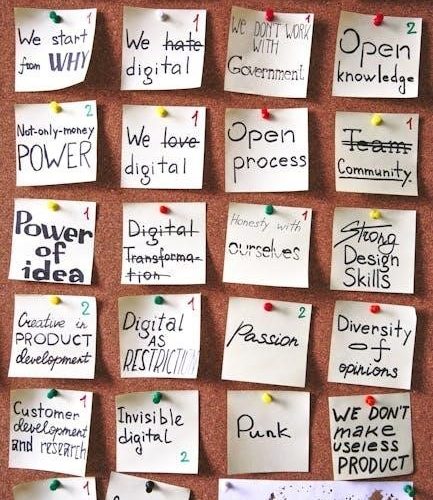 1
We start
from WHY
1
We hate
digital
1
WE DON'T WORK
WITH
Government
2
Open
knowledge
2
Not-only-money
POWER
1
We love
digital
Open
process
1
Team
Community.
1
Power
of
idea
Digital
Transforma-
tion
1
Honesty with
ourselves
Strong
Design
Skills
2
Creative in
PRODUCT
development
1
Digital
AS
RESTRICTION
2
Passion
Diversity
of
opinions
1
Customer
development
and research
Invisible
digital
2
Punk
WE DON'T
make
useless
PRODUCT
1